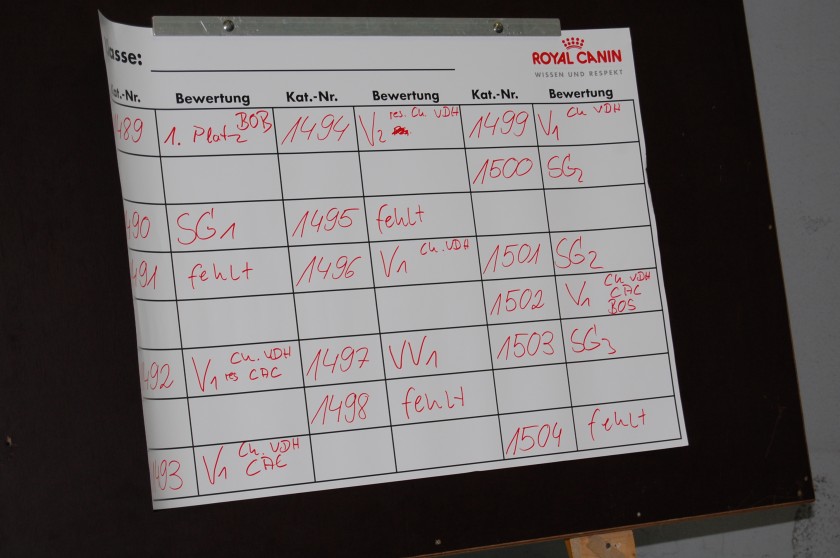 asse:
ROYAL CANIN
WISSEN UND RESPEKT
at.-Nr. Bewertung Kat.-Nr. Bewertung Kat.-Nr. Bewertung
489 1. Platz BOB 1494 V2 res. Ch. VDH 1499 V1 Ch VDH
1500 SG2
490 SG1 1495 fehlt
491 fehlt 1496 V1 Ch. VDH 1501 SG2
1502 V1 Ch VDH CAC BOS
492 V1 Ch. VDH res CAC 1497 VV1 1503 SG3
1498 fehlt
493 V1 Ch. VDH CAC 1504 fehlt